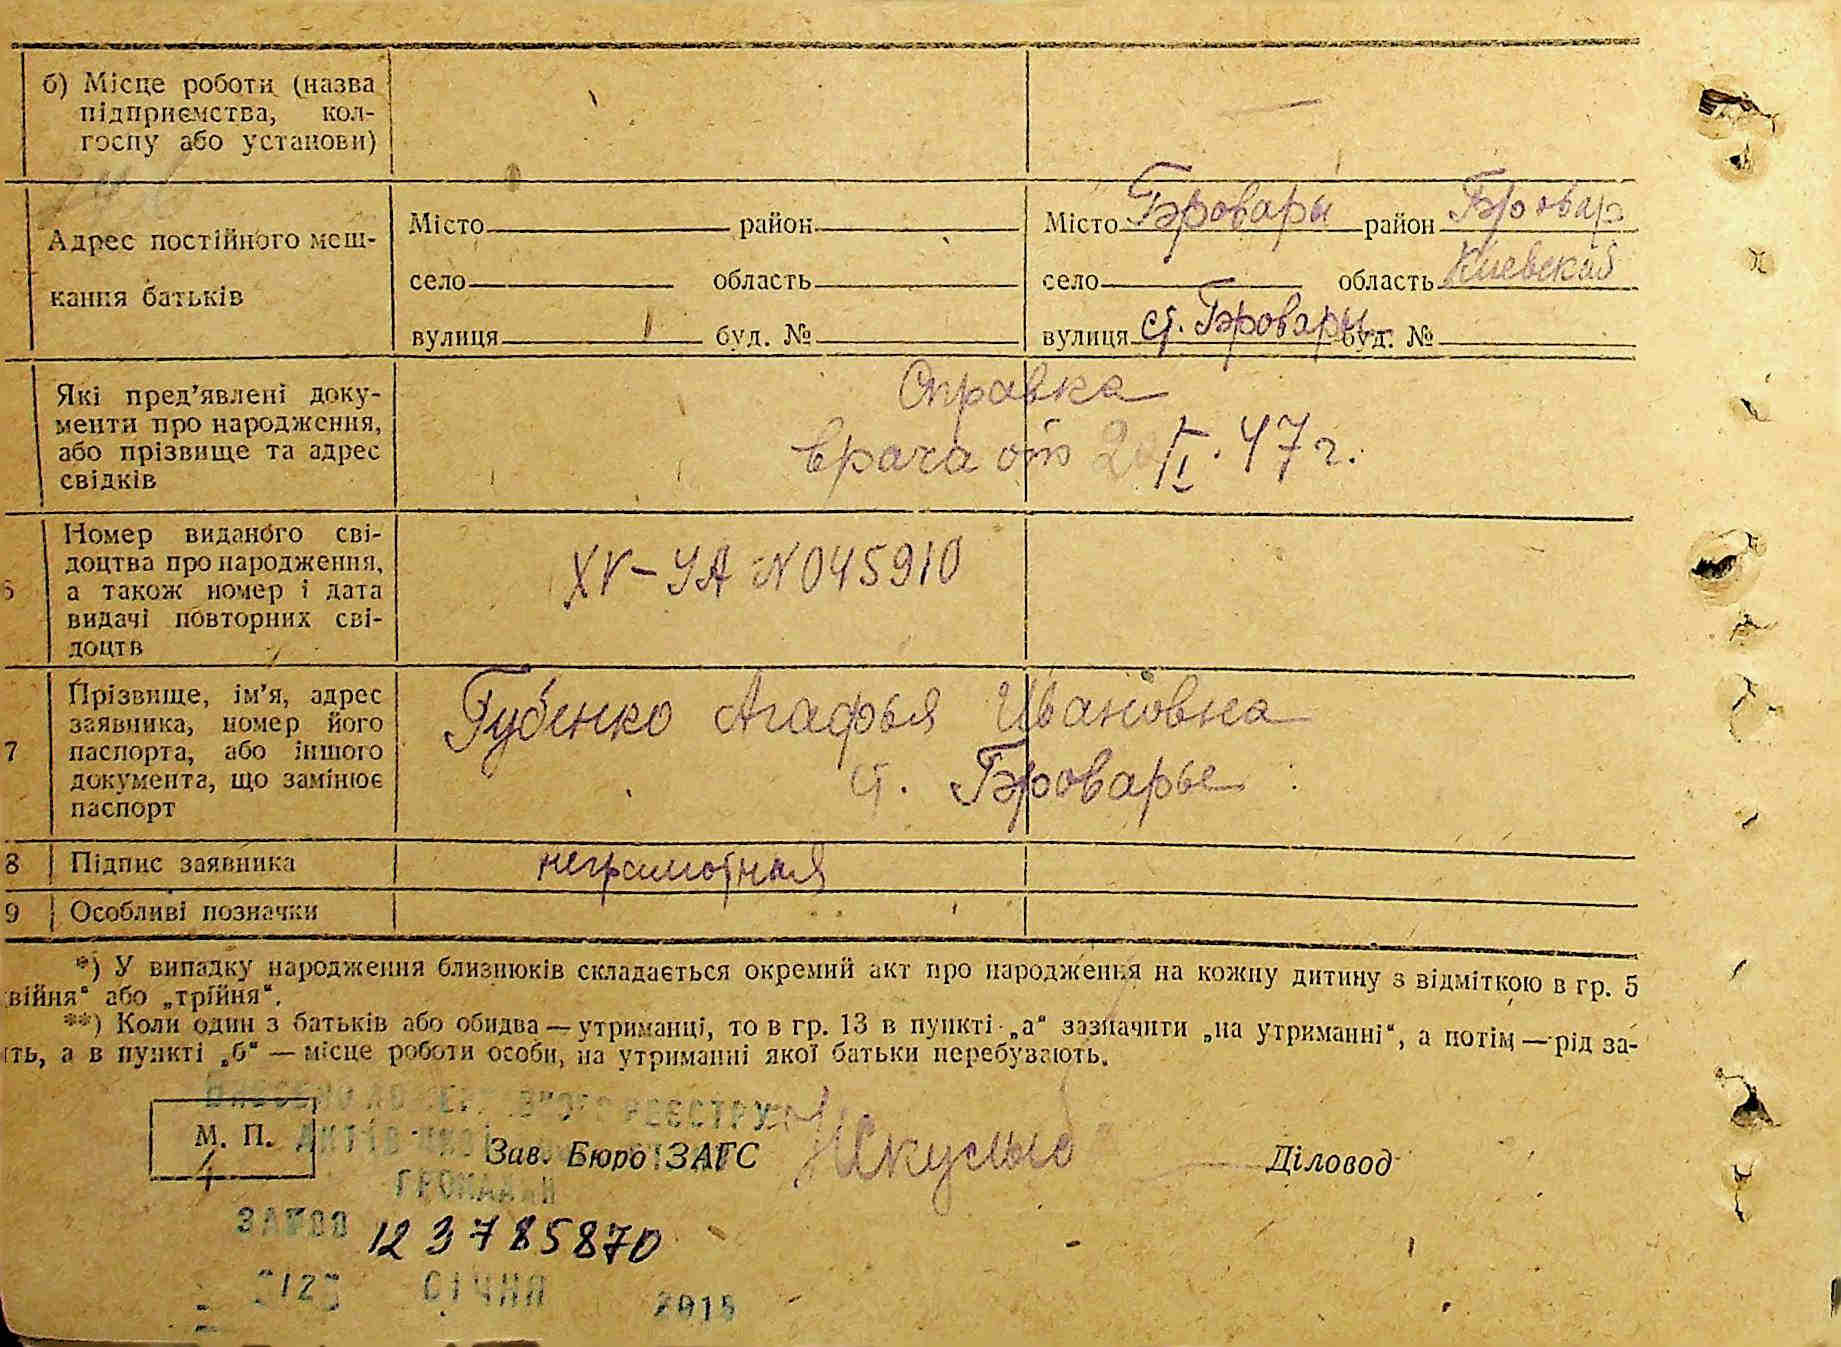 б) Місце роботи (назва
підприємства, кол-
госпу або установи)
Адрес постійного меш-
кання батьків
Місто район
село область
вулиця буд. №
Місто Бровары район Бровар
село область Киевской
вулиця ст. Бровары буд. №
Які пред'явлені доку-
менти про народження,
або прізвище та адрес
свідків
Справка
врача от 20/I. 47 г.
6
Номер виданого сві-
доцтва про народження,
а також номер і дата
видачі повторних сві-
доцтв
XV-УА N 045910
7
Прізвище, ім'я, адрес
заявника, номер його
паспорта, або іншого
документа, що замінює
паспорт
Губенко Агафья Ивановна
ст. Бровары
8 Підпис заявника
неграмотная
9 Особливі позначки
*) У випадку народження близнюків складається окремий акт про народження на кожну дитину з відміткою в гр. 5
війня" або „трійня".
**) Коли один з батьків або обидва — утриманці, то в гр. 13 в пункті „а" зазначити „на утриманні", а потім — рід за-
ть, а в пункті „б" — місце роботи особи, на утриманні якої батьки перебувають.
ВНЕСЕНО ДО ДЕРЖАВНОГО РЕЄСТРУ
М. П.
Зав. Бюро ЗАГС
Діловод
ГРОМАДЯН
ЗА №00 123785870
СІЧНЯ 2015